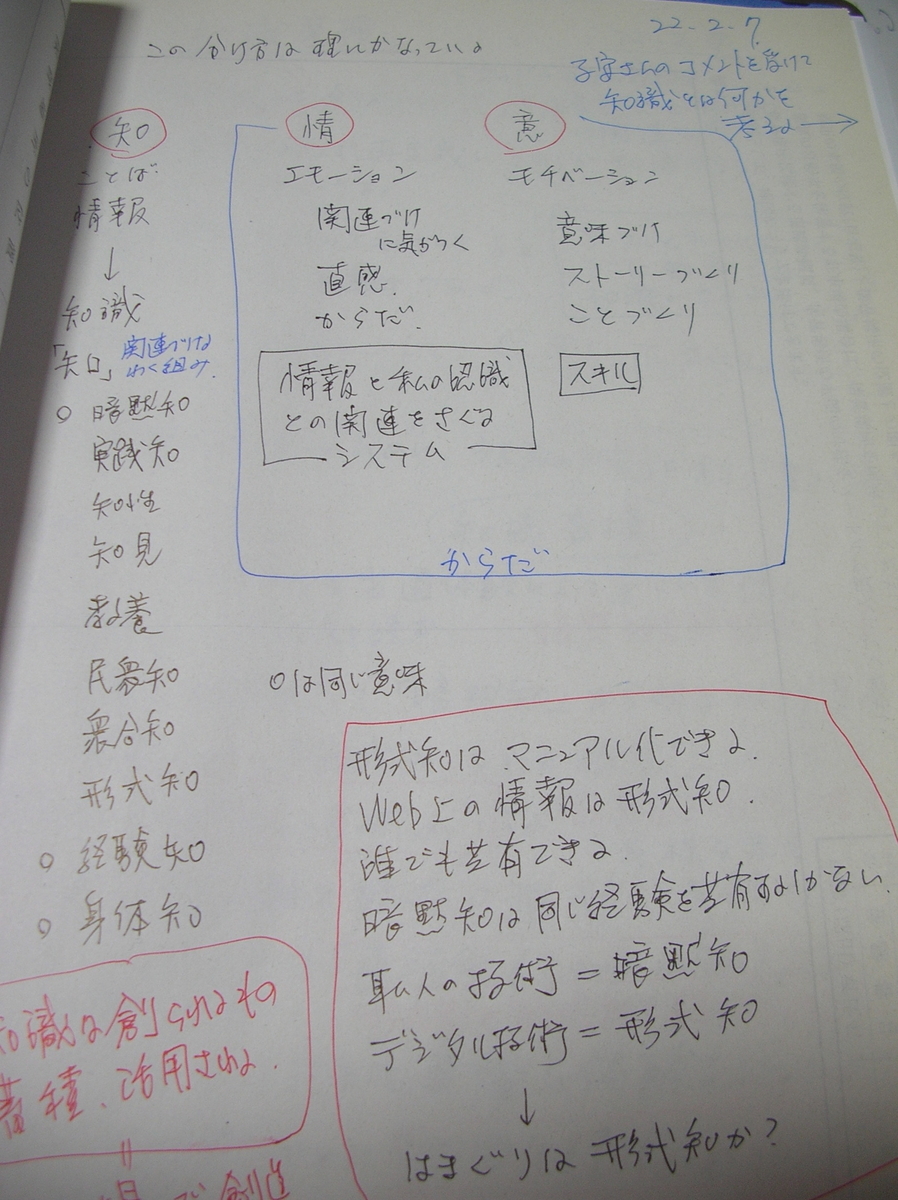 この分け方は理にかなっている
22.2.7
子安さんのコメントを受けて
知識とは何かを
考える→
知
ことば
情報
↓
知識
「知」関連づける
わく組み
○ 暗黙知
実践知
知性
知見
教養
民衆知
衆合知
形式知
○ 経験知
○ 身体知
情
エモーション
関連づけ
に気がつく
直感
からだ
情報と私の認識
との関連をさぐる
システム
意
モチベーション
意味づけ
ストーリーづくり
ことづくり
スキル
からだ
○は同じ意味
形式知はマニュアル化できる.
Web上の情報は形式知.
誰でも共有できる.
暗黙知は同じ経験を共有するしかない.
職人の技術=暗黙知
デジタル技術=形式知
↓
はまぐりは形式知か?
知識は創られるもの
蓄積、活用される.
=
創造